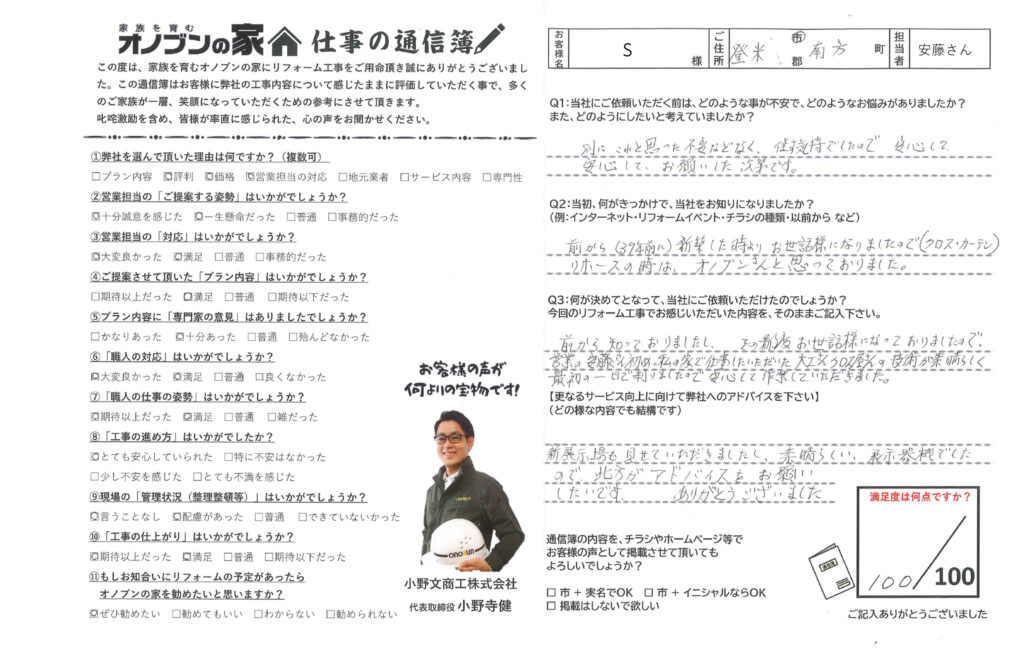 家族を育む
オノブンの家 仕事の通信簿
この度は、家族を育むオノブンの家にリフォーム工事をご用命頂き誠にありがとうございまし
た。この通信簿はお客様に弊社の工事内容について感じたままに評価していただく事で、多く
のご家族が一層、笑顔になっていただくための参考にさせて頂きます。
叱咤激励を含め、皆様が率直に感じられた、心の声をお聞かせください。
①弊社を選んで頂いた理由は何ですか?(複数可)
□プラン内容 ☑評判 ☑価格 ☑営業担当の対応 □地元業者 □サービス内容 □専門性
②営業担当の「ご提案する姿勢」はいかがでしょうか?
☑十分誠意を感じた ☑一生懸命だった □普通 □事務的だった
③営業担当の「対応」はいかがでしょうか?
☑大変良かった ☑満足 □普通 □事務的だった
④ご提案させて頂いた「プラン内容」はいかがでしょうか?
□期待以上だった ☑満足 □普通 □期待以下だった
⑤プラン内容に「専門家の意見」はありましたでしょうか?
□かなりあった ☑十分あった □普通 □殆んどなかった
⑥「職人の対応」はいかがでしょうか?
☑大変良かった ☑満足 □普通 □良くなかった
⑦「職人の仕事の姿勢」はいかがでしょうか?
☑期待以上だった ☑満足 □普通 □雑だった
⑧「工事の進め方」はいかがでしたか?
☑とても安心していられた □特に不安はなかった
□少し不安を感じた □とても不満を感じた
⑨現場の「管理状況(整理整頓等)」はいかがでしょうか?
☑言うことなし ☑配慮があった □普通 □できていないかった
⑩「工事の仕上がり」はいかがでしょうか?
☑期待以上だった ☑満足 □普通 □期待以下だった
⑪もしお知合いにリフォームの予定があったら
オノブンの家を勧めたいと思いますか?
☑ぜひ勧めたい □勧めてもいい □わからない □勧められない
お客様の声が
何よりの宝物です!
onobun
小野文商工株式会社
代表取締役 小野寺健
お客様名 S 様 ご住所 登米 市 郡 南方 町 担当者 安藤さん
Q1:当社にご依頼いただく前は、どのような事が不安で、どのようなお悩みがありましたか?
また、どのようにしたいと考えていましたか?
別に これと思った不安などなく、 住接待でしたので 安心して
安心して、お願いした次第です。
Q2:当初、何がきっかけで、当社をお知りになりましたか?
(例:インターネット・リフォームイベント・チラシの種類・以前から など)
前から(39年前に)新築した時より お世話様になりましたので(クロス・カーテン)
リホースの時は、オノブンさんと思っておりました。
Q3:何が決めてとなって、当社にご依頼いただけたのでしょうか?
今回のリフォーム工事でお感じいただいた内容を、そのままご記入下さい。
前から知っておりましたし、 その前後お世話様になっておりましたので、
営業の安藤さん初め、私の家で仕事していただいた大工さん クロス屋さんの技術が素晴らしく
最初の一日で判りましたので安心して作業していただきました。
【更なるサービス向上に向けて弊社へのアドバイスを下さい】
(どの様な内容でも結構です)
新展示場も見せていただきましたし、素晴らしい、展示器械でした
ので、 アドバイスを お願い
したいです。 ありがとうございました
通信簿の内容を、チラシやホームページ等で
お客様の声として掲載させて頂いても
よろしいでしょうか?
□ 市 + 実名でOK □ 市 + イニシャルならOK
□ 掲載はしないで欲しい
通信簿
満足度は何点ですか?
100/100
ご記入ありがとうございました